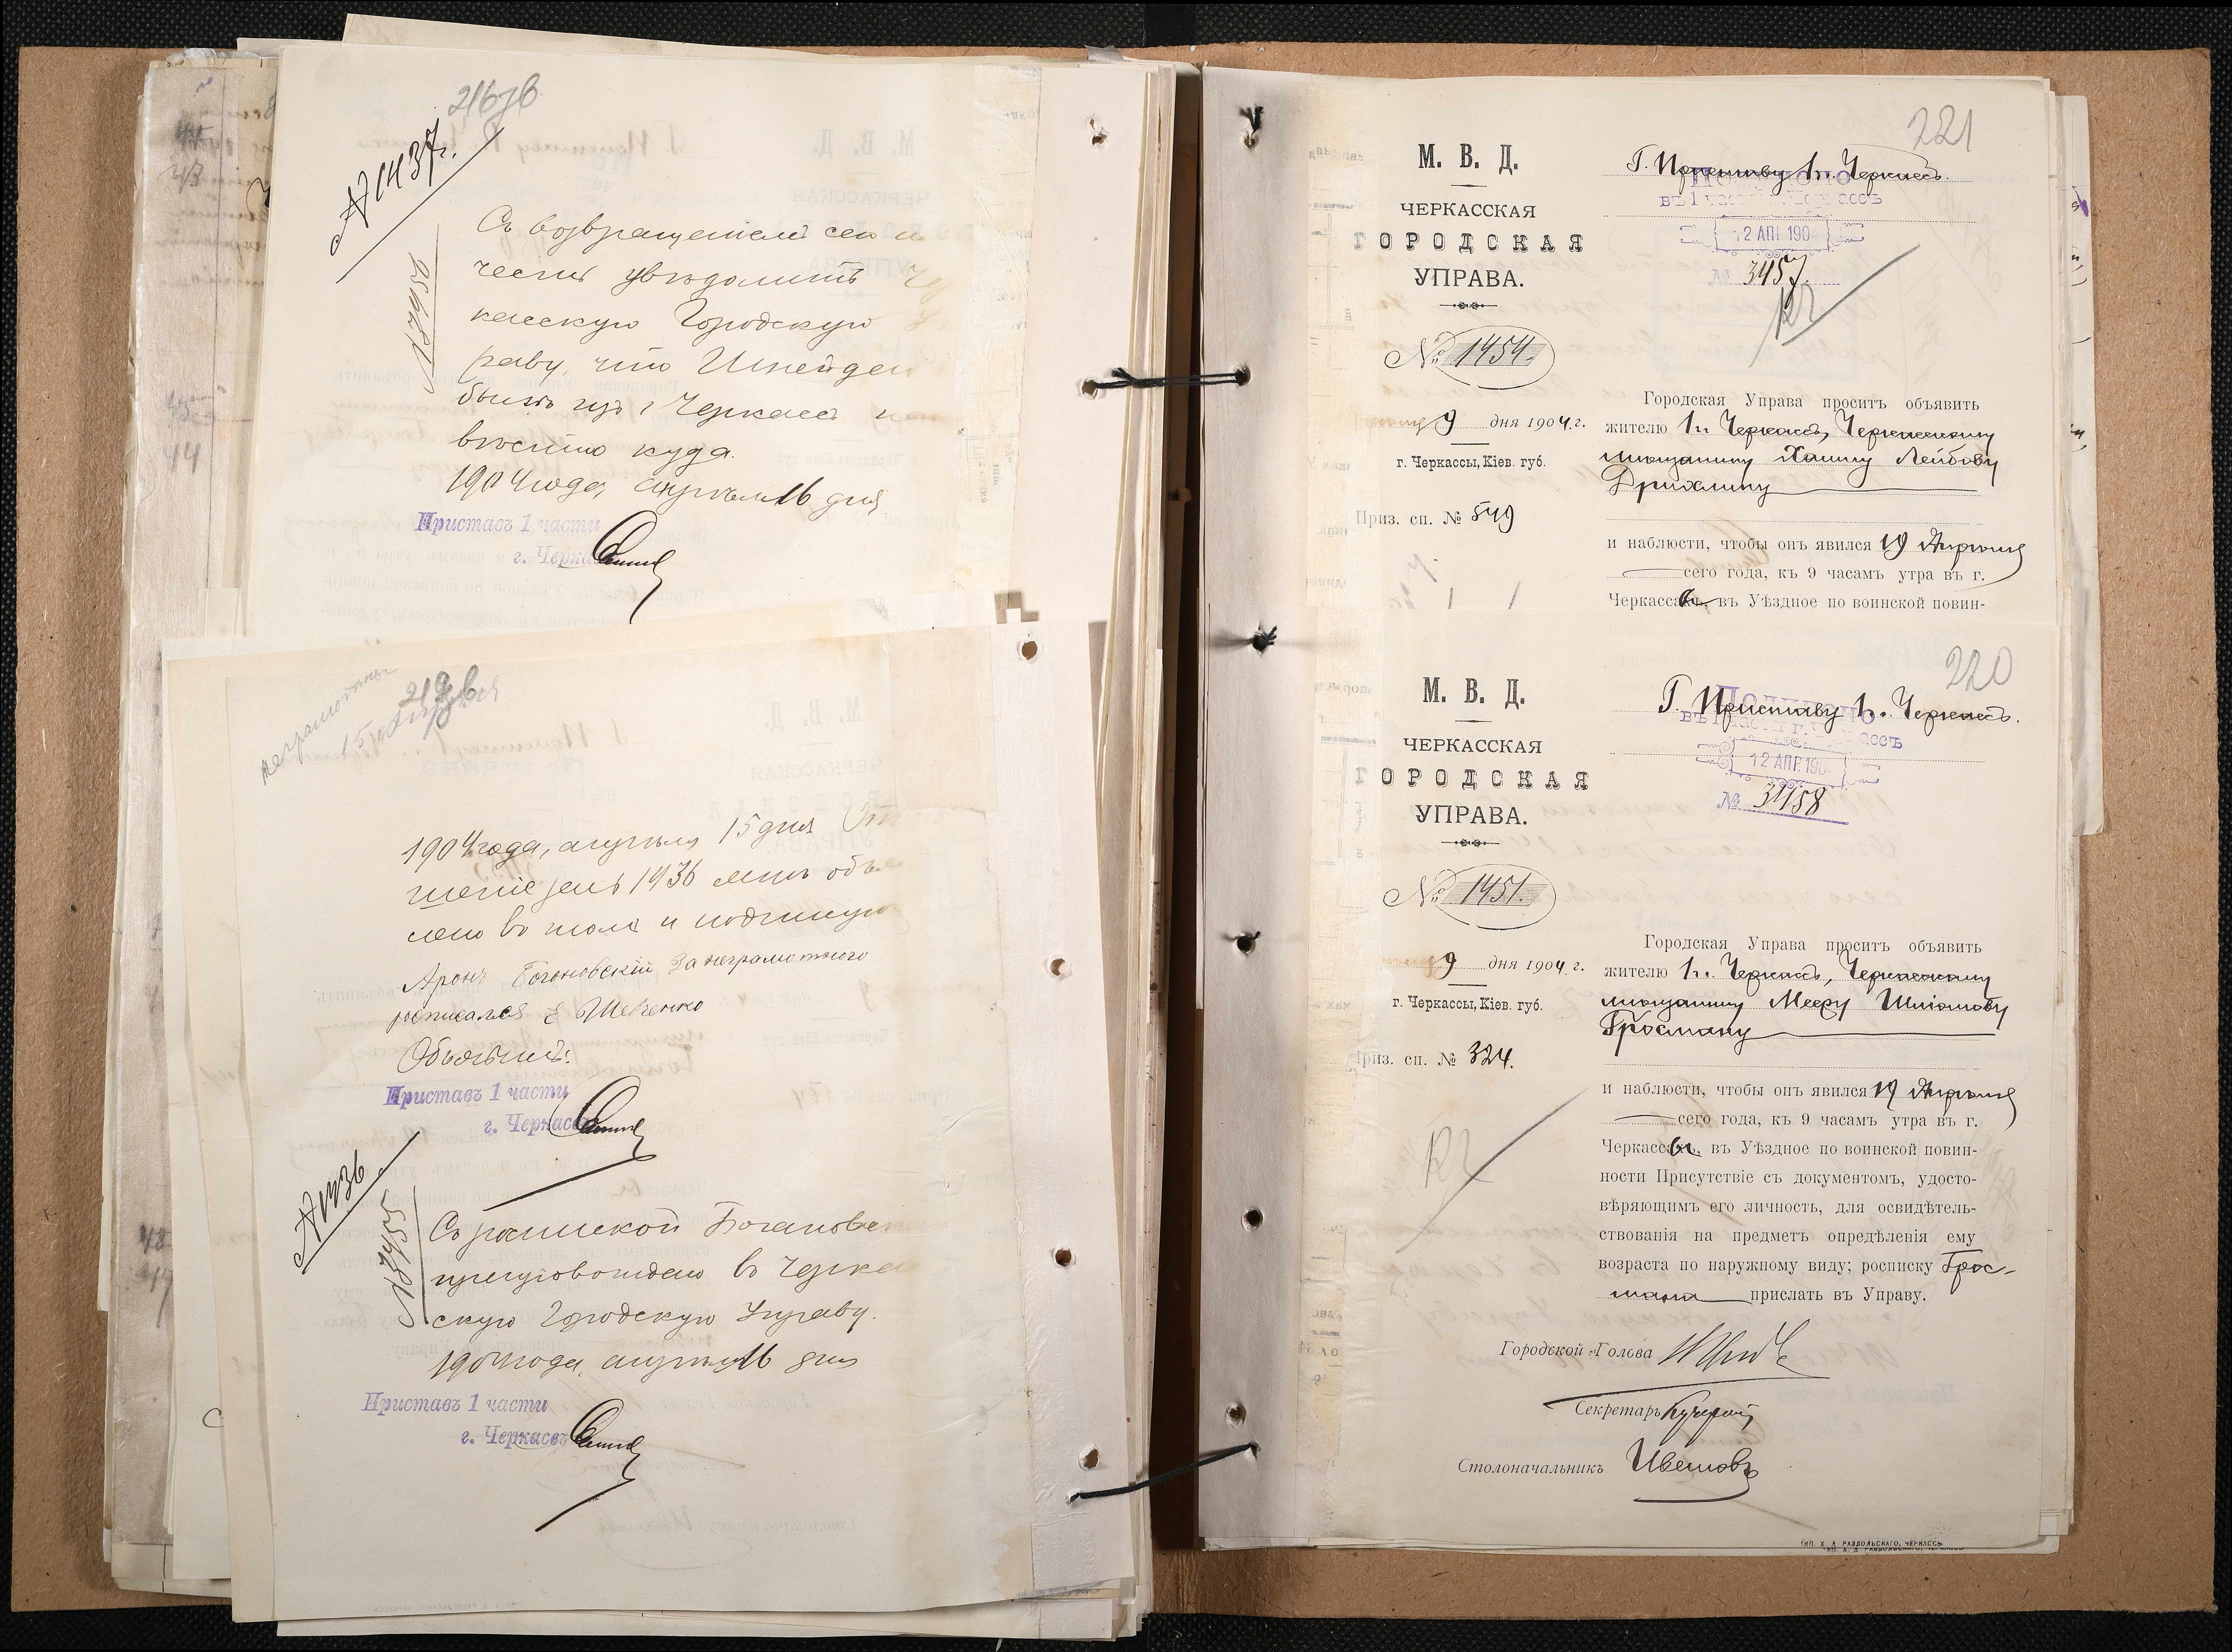 216 об
№ 1437.
№ 3456
Съ возвращеніемъ сего и
честь увѣдомить Чер
касскую Городскую У
раву, что Шнейдер
былъ изъ г. Черкассъ
вѣстно куда.
1904 года, апрѣля 16 дня
Приставъ 1 части
г. Черкассъ
неграмотный
1904 года, апрѣля 15 дня От
шеніе за № 1436 мнѣ объяв
лено въ томъ и подписую
Аронъ Богоновскій За неграмотного
росписался Е Шевченко
Объявилъ:
Приставъ 1 части
г. Черкассъ
№ 1436
№ 3455
Съ роспиской Богановск
препровождаю въ Черкас
скую Городскую Управу.
1904 года, апрѣля 16 дня
Приставъ 1 части
г. Черкассъ
221
М. В. Д.
ЧЕРКАССКАЯ
ГОРОДСКАЯ
УПРАВА.
№ 1454.
9 дня 1904 г.
г. Черкассы, Кіев. губ.
Приз. сп. № 549
Г. Приставу 1 ч. Черкассъ.
Получено
въ 1 части г. Черкассъ
12 АПР 1904
№ 3457
Городская Управа проситъ объявить
жителю 1 ч. Черкассъ, Черкасскому
мѣщанину Хаиму Лейбову
Дрихлину
и наблюсти, чтобы онъ явился 19 Апрѣля
сего года, къ 9 часамъ утра въ г.
Черкассахъ, въ Уѣздное по воинской повин-
220
М. В. Д.
ЧЕРКАССКАЯ
ГОРОДСКАЯ
УПРАВА.
№ 1451.
9 дня 1904 г.
г. Черкассы, Кіев. губ.
Приз. сп. № 324.
Г. Приставу 1 ч. Черкассъ.
Получено
въ 1 части г. Черкассъ
12 АПР. 190
№ 3458
Городская Управа проситъ объявить
жителю 1 ч. Черкассъ, Черкасскому
мѣщанину Мееру Шліомову
Гросману
и наблюсти, чтобы онъ явился 19 Апрѣля
сего года, къ 9 часамъ утра въ г.
Черкассы, въ Уѣздное по воинской повин-
ности Присутствіе съ документомъ, удосто-
вѣряющимъ его личность, для освидѣтель-
ствованія на предметъ опредѣленія ему
возраста по наружному виду; росписку Грос-
мана прислать въ Управу.
Городской Голова
Секретарь Кучерой
Столоначальникъ Ивановъ
Тип. Х. Д. РАВДОЛЬСКАГО, ЧЕРКАССЫ.